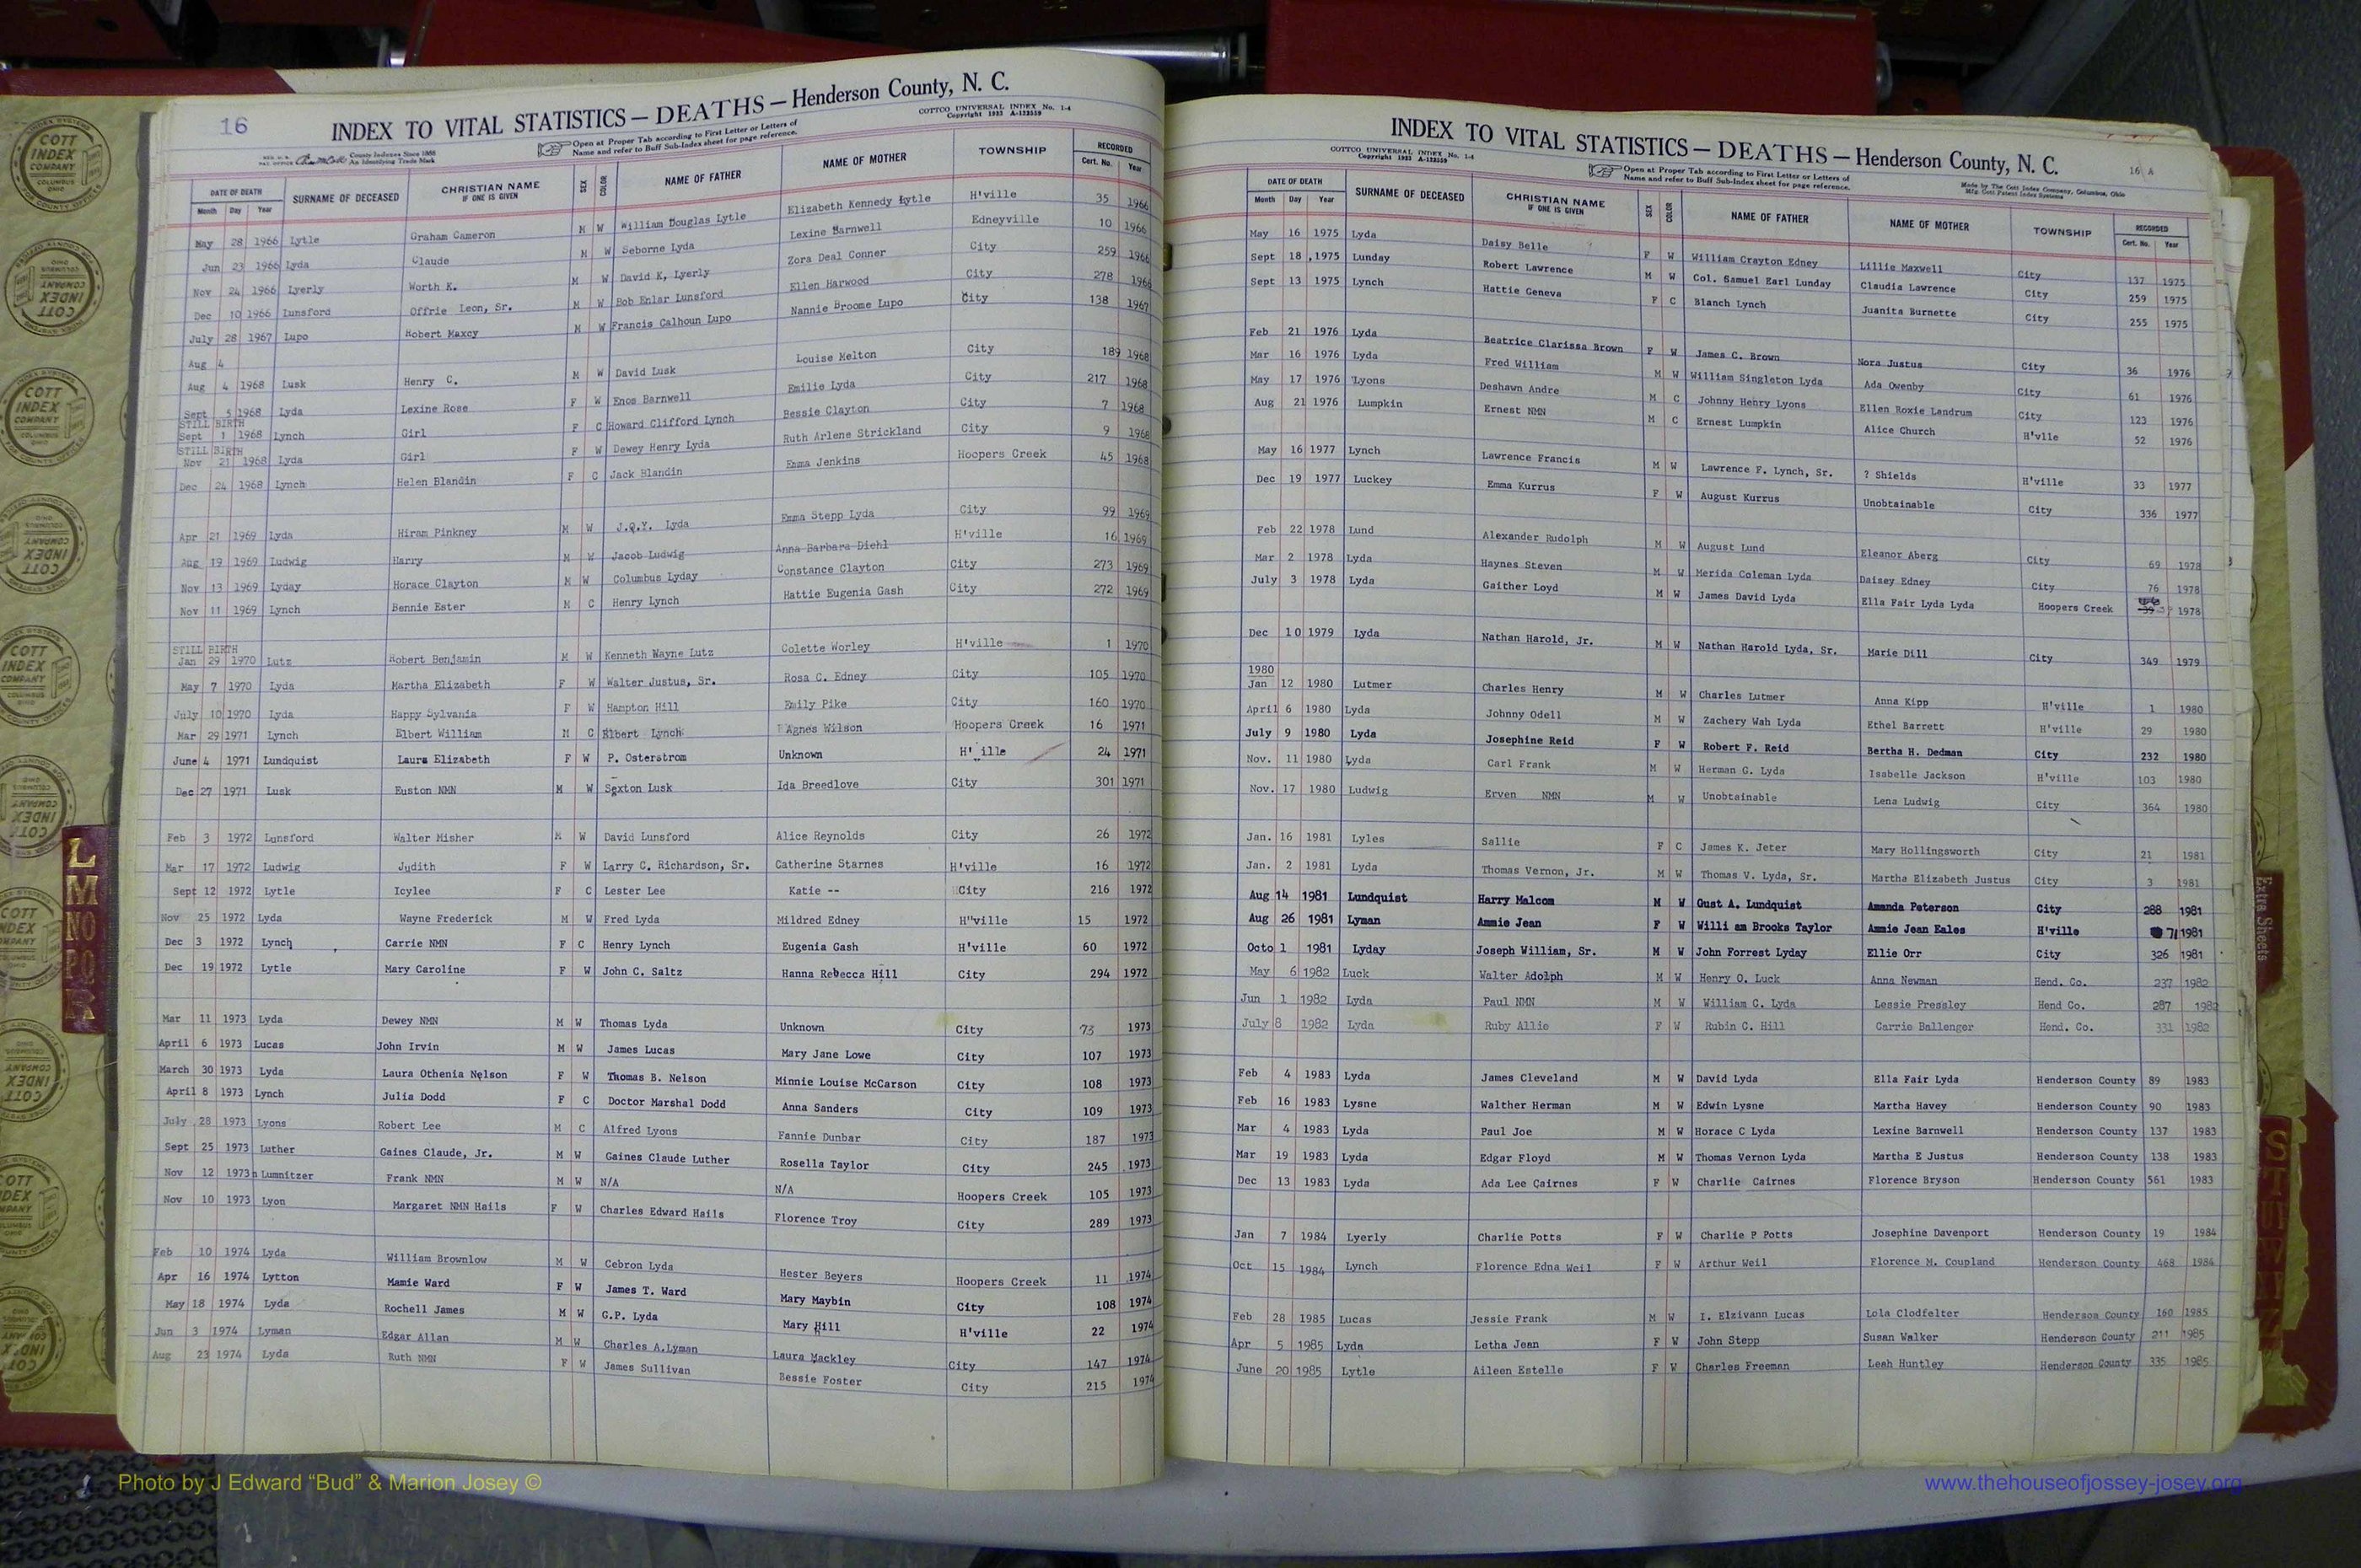 16
INDEX TO VITAL STATISTICS — DEATHS — Henderson County, N. C.
COTTCO UNIVERSAL INDEX No. 1-4
Copyright 1933 A-133559
County Indexes Since 1888
An Identifying Trade Mark
Open at Proper Tab according to First Letter or Letters of
Name and refer to Buff Sub-Index sheet for page reference.
DATE OF DEATH SURNAME OF DECEASED CHRISTIAN NAME IF ONE IS GIVEN SEX COLOR NAME OF FATHER NAME OF MOTHER TOWNSHIP RECORDED
Month Day Year Cert. No. Year
May 28 1966 Lytle Graham Cameron M W William Douglas Lytle Elizabeth Kennedy Lytle H'ville 35 1966
Jun 23 1966 Lyda Claude M W Seborne Lyda Lexine Barnwell Edneyville 10 1966
Nov 24 1966 Lyerly Worth K. M W David K, Lyerly Zora Deal Conner City 259 1966
Dec 10 1966 Lunsford Offrie Leon, Sr. M W Bob Enlar Lunsford Ellen Harwood City 278 1966
July 28 1967 Lupo Robert Maxcy M W Francis Calhoun Lupo Nannie Broome Lupo City 138 1967
Aug 4
Aug 4 1968 Lusk Henry C. M W David Lusk Louise Melton City 189 1968
Sept 5 1968 Lyda Lexine Rose F W Enos Barnwell Emilie Lyda City 217 1968
STILL BIRTH
Sept 1 1968 Lynch Girl F C Howard Clifford Lynch Bessie Clayton City 7 1968
STILL BIRTH
Nov 21 1968 Lyda Girl F W Dewey Henry Lyda Ruth Arlene Strickland City 9 1968
Dec 24 1968 Lynch Helen Blandin F C Jack Blandin Emma Jenkins Hoopers Creek 45 1968
Apr 21 1969 Lyda Hiram Pinkney M W J.Q.Y. Lyda Emma Stepp Lyda City 99 1969
Aug 19 1969 Ludwig Harry M W Jacob Ludwig Anna Barbara Diehl H'ville 16 1969
Nov 13 1969 Lyday Horace Clayton M W Columbus Lyday Constance Clayton City 273 1969
Nov 11 1969 Lynch Bennie Ester M C Henry Lynch Hattie Eugenia Gash City 272 1969
STILL BIRTH
Jan 29 1970 Lutz Robert Benjamin M W Kenneth Wayne Lutz Colette Worley H'ville 1 1970
May 7 1970 Lyda Martha Elizabeth F W Walter Justus, Sr. Rosa C. Edney City 105 1970
July 10 1970 Lyda Happy Sylvania F W Hampton Hill Emily Pike City 160 1970
Mar 29 1971 Lynch Elbert William M C Elbert Lynch Agnes Wilson Hoopers Creek 16 1971
June 4 1971 Lundquist Laura Elizabeth F W P. Osterstrom Unknown H'ville 24 1971
Dec 27 1971 Lusk Euston NMN M W Sexton Lusk Ida Breedlove City 301 1971
Feb 3 1972 Lunsford Walter Misher M W David Lunsford Alice Reynolds City 26 1972
Mar 17 1972 Ludwig Judith F W Larry C. Richardson, Sr. Catherine Starnes H'ville 16 1972
Sept 12 1972 Lytle Icylee F C Lester Lee Katie -- City 216 1972
Nov 25 1972 Lyda Wayne Frederick M W Fred Lyda Mildred Edney H"ville 15 1972
Dec 3 1972 Lynch Carrie NMN F C Henry Lynch Eugenia Gash H'ville 60 1972
Dec 19 1972 Lytle Mary Caroline F W John C. Saltz Hanna Rebecca Hill City 294 1972
Mar 11 1973 Lyda Dewey NMN M W Thomas Lyda Unknown City 73 1973
April 6 1973 Lucas John Irvin M W James Lucas Mary Jane Lowe City 107 1973
March 30 1973 Lyda Laura Othenia Nelson F W Thomas B. Nelson Minnie Louise McCarson City 108 1973
April 8 1973 Lynch Julia Dodd F C Doctor Marshal Dodd Anna Sanders City 109 1973
July 28 1973 Lyons Robert Lee M C Alfred Lyons Fannie Dunbar City 187 1973
Sept 25 1973 Luther Gaines Claude, Jr. M W Gaines Claude Luther Rosella Taylor City 245 1973
Nov 12 1973 Lumnitzer Frank NMN M W N/A N/A Hoopers Creek 105 1973
Nov 10 1973 Lyon Margaret NMN Hails F W Charles Edward Hails Florence Troy City 289 1973
Feb 10 1974 Lyda William Brownlow M W Cebron Lyda Hester Beyers Hoopers Creek 11 1974
Apr 16 1974 Lytton Mamie Ward F W James T. Ward Mary Maybin City 108 1974
May 18 1974 Lyda Rochell James M W G.P. Lyda Mary Hill H'ville 22 1974
Jun 3 1974 Lyman Edgar Allan M W Charles A.Lyman Laura Mackley City 147 1974
Aug 23 1974 Lyda Ruth NMN F W James Sullivan Bessie Foster City 215 1974
INDEX TO VITAL STATISTICS — DEATHS — Henderson County, N. C.
16 A
COTTCO UNIVERSAL INDEX No. 1-4
Copyright 1933 A-133559
Open at Proper Tab according to First Letter or Letters of
Name and refer to Buff Sub-Index sheet for page reference.
Made by The Cott Index Company, Columbus, Ohio
Mfg. Cott Patent Index Systems
DATE OF DEATH SURNAME OF DECEASED CHRISTIAN NAME IF ONE IS GIVEN SEX COLOR NAME OF FATHER NAME OF MOTHER TOWNSHIP RECORDED
Month Day Year Cert. No. Year
May 16 1975 Lyda Daisy Belle F W William Crayton Edney Lillie Maxwell City 137 1975
Sept 18 ,1975 Lunday Robert Lawrence M W Col. Samuel Earl Lunday Claudia Lawrence City 259 1975
Sept 13 1975 Lynch Hattie Geneva F C Blanch Lynch Juanita Burnette City 255 1975
Feb 21 1976 Lyda Beatrice Clarissa Brown F W James C. Brown Nora Justus City 36 1976
Mar 16 1976 Lyda Fred William M W William Singleton Lyda Ada Owenby City 61 1976
May 17 1976 Lyons Deshawn Andre M C Johnny Henry Lyons Ellen Roxie Landrum City 123 1976
Aug 21 1976 Lumpkin Ernest NMN M C Ernest Lumpkin Alice Church H'vlle 52 1976
May 16 1977 Lynch Lawrence Francis M W Lawrence F. Lynch, Sr. ? Shields H'ville 33 1977
Dec 19 1977 Luckey Emma Kurrus F W August Kurrus Unobtainable City 336 1977
Feb 22 1978 Lund Alexander Rudolph M W August Lund Eleanor Aberg City 69 1978
Mar 2 1978 Lyda Haynes Steven M W Merida Coleman Lyda Daisey Edney City 76 1978
July 3 1978 Lyda Gaither Loyd M W James David Lyda Ella Fair Lyda Lyda Hoopers Creek 1978
Dec 10 1979 Lyda Nathan Harold, Jr. M W Nathan Harold Lyda, Sr. Marie Dill City 349 1979
1980
Jan 12 1980 Lutmer Charles Henry M W Charles Lutmer Anna Kipp H'ville 1 1980
April 6 1980 Lyda Johnny Odell M W Zachery Wah Lyda Ethel Barrett H'ville 29 1980
July 9 1980 Lyda Josephine Reid F W Robert F. Reid Bertha H. Dedman City 232 1980
Nov. 11 1980 Lyda Carl Frank M W Herman G. Lyda Isabelle Jackson H'ville 103 1980
Nov. 17 1980 Ludwig Erven NMN M W Unobtainable Lena Ludwig City 364 1980
Jan. 16 1981 Lyles Sallie F C James K. Jeter Mary Hollingsworth City 21 1981
Jan. 2 1981 Lyda Thomas Vernon, Jr. M W Thomas V. Lyda, Sr. Martha Elizabeth Justus City 3 1981
Aug 14 1981 Lundquist Harry Malcom M W Gust A. Lundquist Amanda Peterson City 288 1981
Aug 26 1981 Lyman Ammie Jean F W Willi am Brooks Taylor Ammie Jean Eales H'ville 71 1981
Octo 1 1981 Lyday Joseph William, Sr. M W John Forrest Lyday Ellie Orr City 326 1981
May 6 1982 Luck Walter Adolph M W Henry O. Luck Anna Newman Hend. Co. 237 1982
Jun 1 1982 Lyda Paul NMN M W William C. Lyda Lessie Pressley Hend Co. 287 1982
July 8 1982 Lyda Ruby Allie F W Rubin C. Hill Carrie Ballenger Hend. Co. 331 1982
Feb 4 1983 Lyda James Cleveland M W David Lyda Ella Fair Lyda Henderson County 89 1983
Feb 16 1983 Lysne Walther Herman M W Edwin Lysne Martha Havey Henderson County 90 1983
Mar 4 1983 Lyda Paul Joe M W Horace C Lyda Lexine Barnwell Henderson County 137 1983
Mar 19 1983 Lyda Edgar Floyd M W Thomas Vernon Lyda Martha E Justus Henderson County 138 1983
Dec 13 1983 Lyda Ada Lee Cairnes F W Charlie Cairnes Florence Bryson Henderson County 561 1983
Jan 7 1984 Lyerly Charlie Potts F W Charlie P Potts Josephine Davenport Henderson County 19 1984
Oct 15 1984 Lynch Florence Edna Weil F W Arthur Weil Florence M. Coupland Henderson County 468 1984
Feb 28 1985 Lucas Jessie Frank M W I. Elzivann Lucas Lola Clodfelter Henderson County 160 1985
Apr 5 1985 Lyda Letha Jean F W John Stepp Susan Walker Henderson County 211 1985
June 20 1985 Lytle Aileen Estelle F W Charles Freeman Leah Huntley Henderson County 335 1985
L
M
NO
PQ
R
Extra Sheets
COTT INDEX COMPANY COLUMBUS OHIO
Photo by J Edward “Bud” & Marion Josey ©
www.thehouseofjossey-josey.org